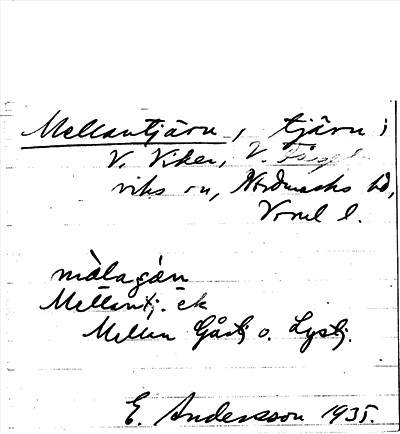 Mellantjärn, tjärn i
V. Viker, V.
viks sn, Nordmarks hd,
Vrml l.
målagån
Mellantj. ek
Mellan Gåstj o. Lystj.
E. Andersson 1935.